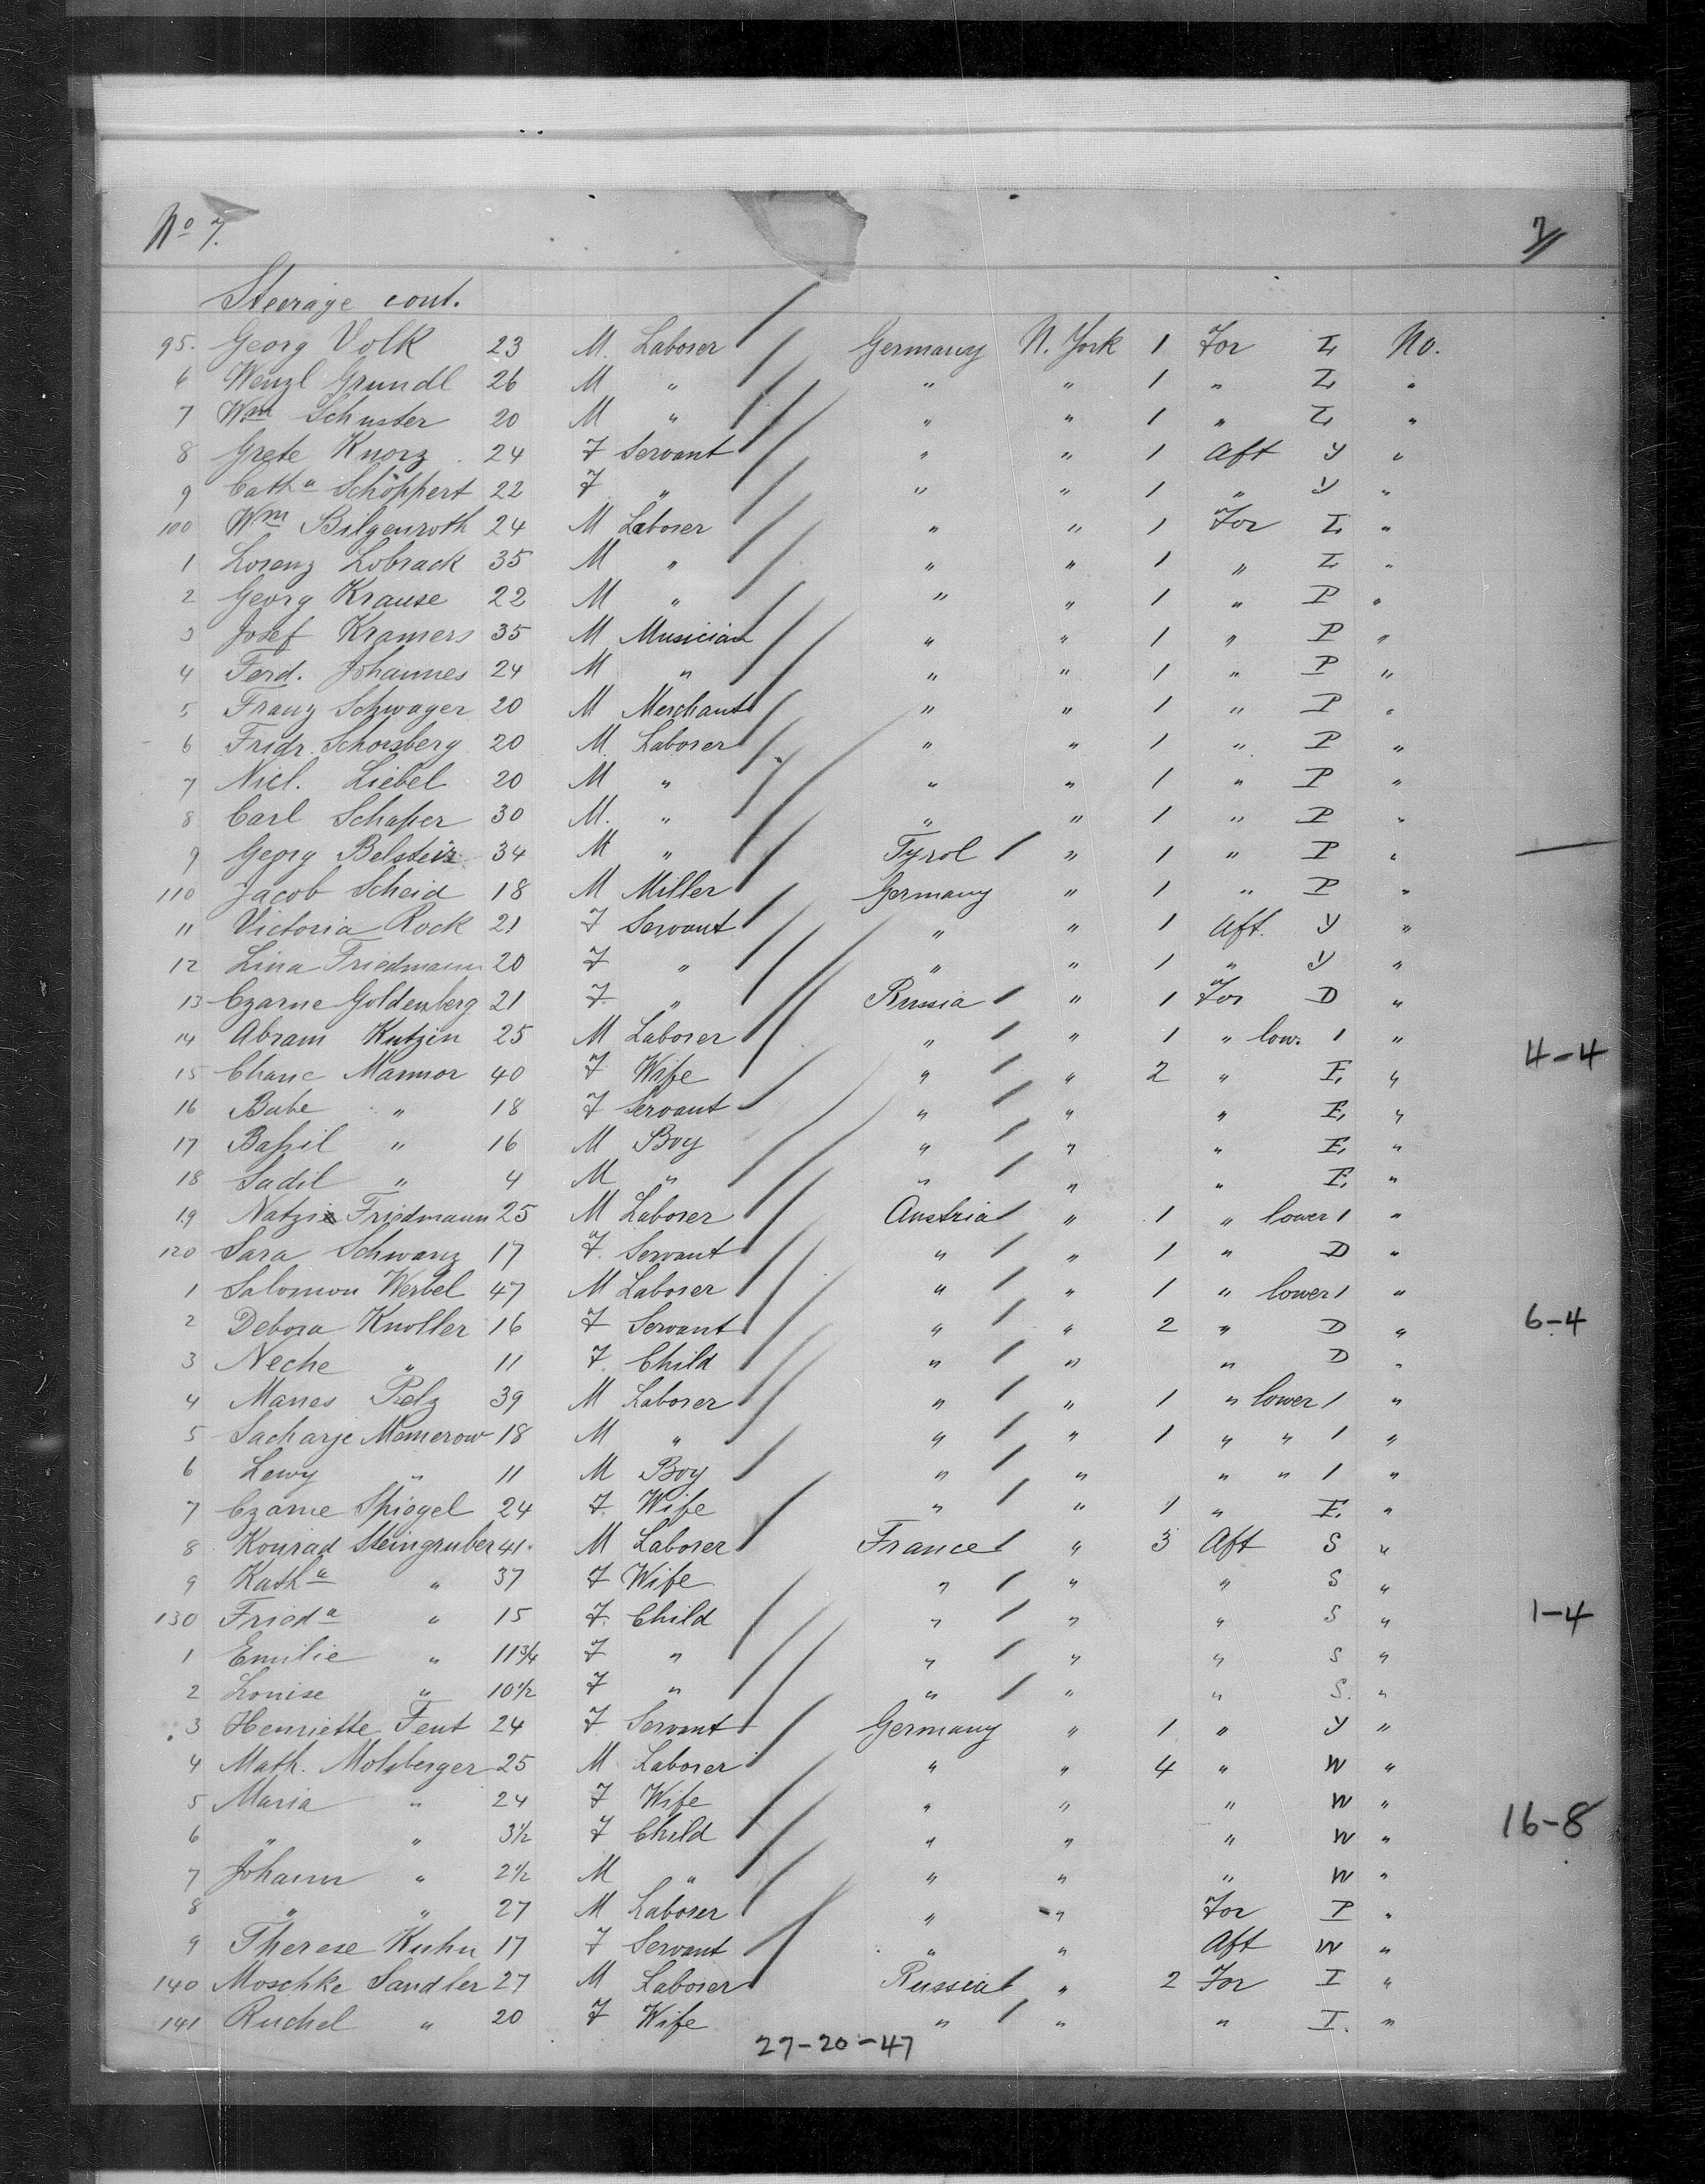 No 7. 7
Steerage cont.
95. Georg Volk 23 M. Laborer Germany N. York 1 For L No.
6 Wenzl Grundl 26 M " " " 1 " L "
7 Wm Schuster 20 M " " " 1 " L "
8 Grete Knorz 24 F Servant " " 1 Aft Y "
9 Catha Schöppert 22 F " " " 1 " Y "
100 Wm Bilgenroth 24 M Laborer " " 1 For L "
1 Lorenz Lobrack 35 M " " " 1 " L "
2 Georg Krause 22 M " " " 1 " P "
3 Josef Kramers 35 M Musician " " 1 " P "
4 Ferd. Johannes 24 M " " " 1 " P "
5 Franz Schwager 20 M Merchant " " 1 " P "
6 Fridr. Schorsberg 20 M. Laborer " " 1 " P "
7 Nicl. Liebel 20 M " " " 1 " P "
8 Carl Schaper 30 M. " " " 1 " P "
9 Georg 34 M " Tyrol " 1 " P "
110 Jacob Scheid 18 M Miller Germany " 1 " P "
11 Victoria Rock 21 F Servant " " 1 Aft. Y "
12 Lina Friedmann 20 F " " " 1 " Y "
13 Czarne Goldenberg 21 F " Russia " 1 For D "
14 Abram Kutzin 25 M Laborer " " 1 " low. 1 " 4-4
15 Chane Marmor 40 F Wife " " 2 " E, "
16 Bube " 18 F Servant " " " E, "
17 Baßil " 16 M Boy " " " E, "
18 Sadil " 4 M " " " " E, "
19 Natzi Friedmann 25 M Laborer Austria " 1 " lower 1 "
120 Sara Schwarz 17 F. Servant " " 1 " D "
1 Salomon Werbel 47 M Laborer " " 1 " lower 1 "
2 Debora Knoller 16 F Servant " " 2 " D " 6-4
3 Neche " 11 F. Child " " " D "
4 Manes Pelz 39 M Laborer " " 1 " lower 1 "
5 Sacharje Memerow 18 M " " " 1 " " 1 "
6 Lewy " 11 M Boy " " " " 1 "
7 Czarne Spiegel 24 F. Wife " " 1 " E, "
8 Konrad Steingruber 41. M Laborer France " 3 Aft S "
9 Katha " 37 F Wife " " " S "
130 Frieda " 15 F. Child " " " S " 1-4
1 Emilie " 11 3/4 F " " " " S "
2 Louise " 10 1/2 F " " " " S. "
3 Henriette Fent 24 F. Servant Germany " 1 " Y "
4 Math. Molsberger 25 M. Laborer " " 4 " W "
5 Maria " 24 F Wife " " " W " 16-8
6 " " 3 1/2 F Child " " " W "
7 Johann " 2 1/2 M " " " " W "
8 " " 27 M Laborer " " For P "
9 Therese Kuhn 17 F Servant " " Aft W "
140 Moschke Sandler 27 M Laborer Russia " 2 For I "
141 Ruchel " 20 F Wife " " " I. "
27-20-47